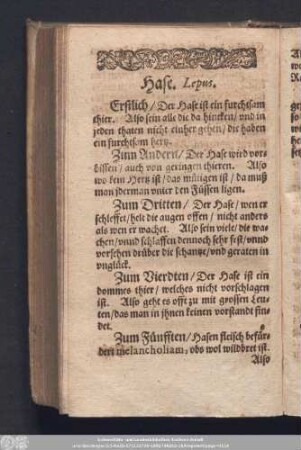 Hase. Lepus.
Erstlich / Der Hase ist ein furchtsam
thier. Also sein alle die da hincken / vnd in
jeden thaten nicht einher gehen / die haben
ein furchtsam hertz.
Zum Andern / Der Hase wird vor-
bissen / auch von geringen thieren. Also
wo kein Hertz ist / das mütigen ist / da muß
man jderman vnter den Füssen ligen.
Zum Dritten / Der Hase / wen er
schleffet / helt die augen offen / nicht anders
als wen er wachet. Also sein viele / die wa-
chen / vnnd schlaffen dennoch sehr fest / vnnd
vorsehen drüber die schantze / vnd geraten in
vnglück.
Zum Vierdten / Der Hase ist ein
dommes thier / welches nicht vorschlagen
ist. Also geht es offt zu mit grossen Leu-
ten / das man in jhnen keinen vorstandt fin-
det.
Zum Fünfften / Hasen fleisch befür-
dert melancholiam, obs wol wildbret ist.
Also